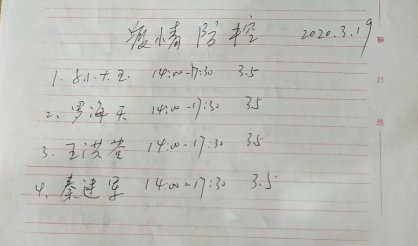 疫情防控 2020.3.19
1. 孙大玉 14:00-17:30 3.5
2、罗海天 14:00-17:30 3.5
3. 王洪荃 14:00-17:30 3.5
4. 秦建军 14:00-17:30 3.5